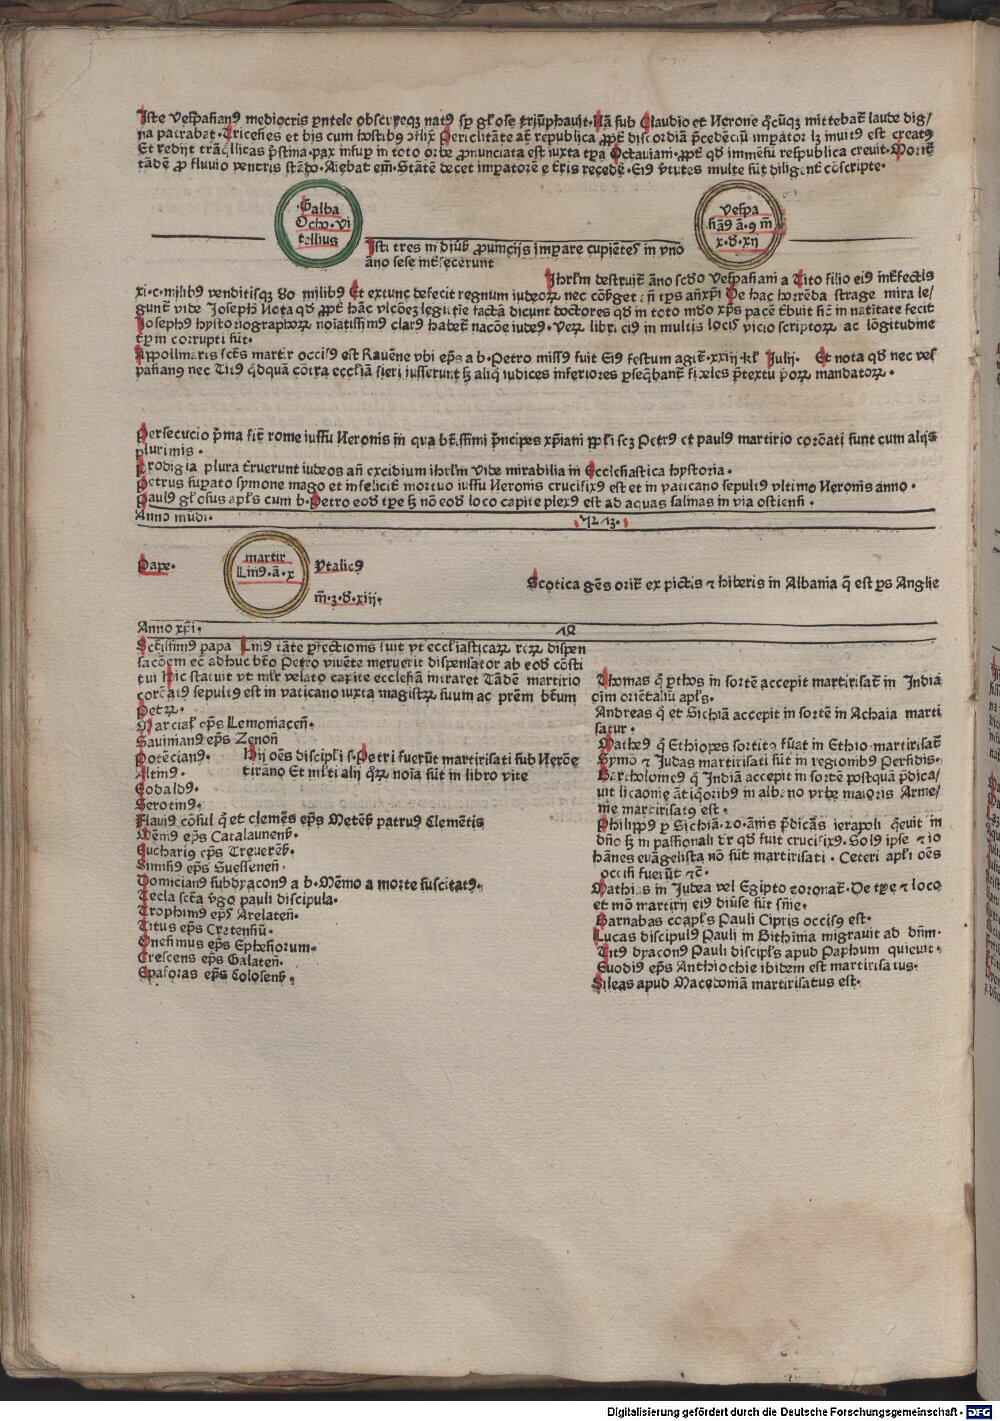 Iste Vespasianꝰ mediocris pntele obscureqz natꝰ sꝑ gl'ose triūphauit. Nā sub Claudio et Nerone q̄cūqz mittebat̄ laude dig/
na patrabat. Tricesies et bis cum hostibꝰ ɔflix̄ Periclitāte at̄ republica ꝓpt̄ discordiā p̄cedēciū imꝑator lz inuitꝰ est creatꝰ
Et redijt trāq̄llitas p̄stina. pax insuꝑ in toto orbe ꝓnunciata est iuxta tꝑa Octauiani. ꝓpt̄ qd̛ immēsū respublica creuit. Morit̄
tādē ꝓ fluuio ventris stādo. Aiebat em̄. Stātē decet imꝑatorē e t̄ris recedē. Eiꝰ v̄tutes multe sūt diligent̄ cōscripte.
Galba
Octo. Vi
tellius
Vespa
siāꝰ ā. 9 m̄
x. d. xij
Isti tres in diuīs ꝓuincijs imꝑare cupiētes in vno
āno sese int̄fecerunt
Ihrl̄m destruit̄ āno scd̛o Vespasiani a Tito filio eiꝰ int̄fectis
xi. c. milibꝰ venditisqz 80 milibꝰ Et extunc defecit regnum iudeoꝝ nec cōsurget añ tꝑs añxp̄i De hac horrēda strage mira le/
gunt̄ vide Joseph̄ Nota qd̛ ꝓpt̄ hāc vlcōez legittie factā dicunt doctores qd̛ in toto mūdo xp̄s pacē t̄buit sic̄ in natiuitate fecit
Josephꝰ hystoriographoꝝ noiatissimꝰ clarꝰ habet̄ nacōe iudeꝰ. Veꝝ libri eiꝰ in multis locis vicio scriptoꝝ ac lōgitudine
tꝑm corrupti sūt.
Appollinaris sct̄s martir occisꝰ est Rauēne vbi ep̄s a b. Petro missꝰ fuit Eiꝰ festum agit̄. xxiij kl̄ Julij. Et nota qd̛ nec ves/
pasianꝰ nec Titꝰ q̄dquā cōtra eccl̄iā fieri iusserunt ꜩ aliq̄ iudices inferiores ꝑseq̄bant̄ fideles p̄textu p̄oꝝ mandatoꝝ.
Persecucio p̄ma fit rome iussu Neronis in qua bt̄issimi p̄ncipes xp̄iani ppl̄i scz Petrꝰ et paulꝰ martirio corōati sunt cum alijs
plurimis.
Prodigia plura t̄ruerunt iudeos añ excidium ihrl̄m Vide mirabilia in Ecclesiastica hystoria.
Petrus suꝑato symone mago et infelicit̄ mortuo iussu Neronis crucifixꝰ est et in vaticano sepultꝰ vltimo Neronis anno.
Paulꝰ gl'osus apl̄s cum b. Petro eod̛ tꝑe ꜩ nō eod̛ loco capite plexꝰ est ad aquas saluias in via ostiensi.
Anno mūdi.
Pape.
martir
Linꝰ. ā. x
Ytalicꝰ
m̄. 3. d. xiij.
Scotica gēs orit̄ ex pictis ⁊ hiberis in Albania q̄ est ꝑs Anglie
Anno xp̄i.
Sct̄issimꝰ papa Linꝰ tāte ꝑfectionis fuit vt eccl̄iasticaꝝ reꝝ dispen
sacōem ec̄ adhuc bt̄o Petro viuēte meruerit dispensator ab eod̛ cōsti
tui Hic statuit vt mlr̄ velato capite ecclesiā intraret Tādē martirio
corōatꝰ sepultꝰ est in vaticano iuxta magistꝝ suum ac prēm bt̄um
Petꝝ.
Marcial̄ ep̄s Lemouicen̄.
Sauinianꝰ ep̄s Zenon̄
Potēcianꝰ.
Hij oēs discipl̄i s. Petri fuerūt martirisati sub Nerōe
tirāno Et ml̄ti alij qꝝ noīa sūt in libro vite
Altinꝰ.
Eobaldꝰ.
Serotinꝰ.
Flauiꝰ cōsul q̄ et clemēs ep̄s Metēs̄ patruꝰ Clemētis
Memiꝰ ep̄s Catalaunens̄.
Euchariꝰ ep̄s Treueres̄.
Sinisiꝰ ep̄s Suessenen̄.
Domicianꝰ subdyaconꝰ a b. Mēmo a morte suscitatꝰ.
Tecla sct̄a v̄go pauli discipula.
Trophimꝰ ep̄s Arelaten̄.
Titus ep̄s Cretensiū.
Onesimus ep̄s Ephesiorum.
Crescens ep̄s Galaten̄.
Epafras ep̄s Colosens̄.
Thomas q̄ ꝑthos in sortē accepit martirisat̄ in Indiā
cim oriētaliū apl̄s.
Andreas q̄ et Sichiā accepit in sortē in Achaia marti
satur.
Matheꝰ q̄ Ethiopes sortitꝰ fūat in Ethio. martirisat̄
Symō ⁊ Judas martirisati sūt in regionibꝰ Persidis.
Bartholomeꝰ q̄ Indiā accepit in sortē postquā p̄dica/
uit licaonie ātiq̄oribꝰ in albano vrbe maioris Arme/
nie martirisatꝰ est.
Philippꝰ ꝑ Sichiā. 20. ānis p̄dicās ierapoli q̄euit in
dn̄o ꜩ in passionali t̄r qd̛ fuit crucifixꝰ. Solꝰ ipse ⁊ io
hānes euāgelista nō sūt martirisati. Ceteri apl̄i oēs
occisi fuerūt ⁊c̄.
Mathias in Judea vel Egipto coronat̄. De tꝑe ⁊ loco
et mō martirij eiꝰ diūse sūt sn̄ie.
Barnabas coapl̄s Pauli Cipris occisꝰ est.
Lucas discipulꝰ Pauli in Bithinia migrauit ad dn̄m.
Titꝰ dyaconꝰ Pauli discipl̄s apud Paphum quieuit.
Euodiꝰ ep̄s Anthiochie ibidem est martirisatus.
Sileas apud Macedoniā martirisatus est.
Digitalisierung gefördert durch die Deutsche Forschungsgemeinschaft - DFG